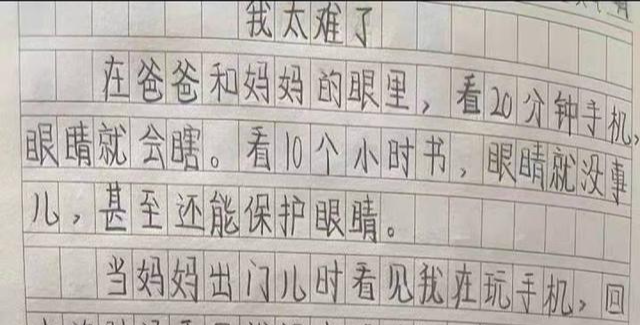 我太难了
在爸爸和妈妈的眼里，看20分钟手机，
眼睛就会瞎。看10个小时书，眼睛就没事
儿，甚至还能保护眼睛。
当妈妈出门儿时看见我在玩手机，回